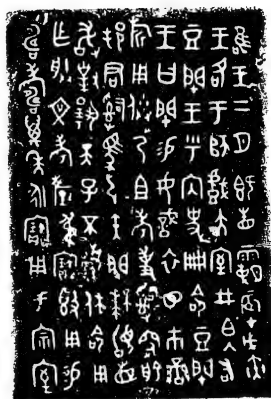 隹王二月既眚霸辰才戊寅
王各于師戲大室井白入右
豆閉王乎內史冊命豆閉
王曰閉易女戠衣巿䜌
旂用乃且考事𤔲俞
邦君𤔲馬弓矢閉拜
首敢對揚天子不顯休命用
乍朕文考釐叔寶𣪘用易
壽萬年永寶用于宗室